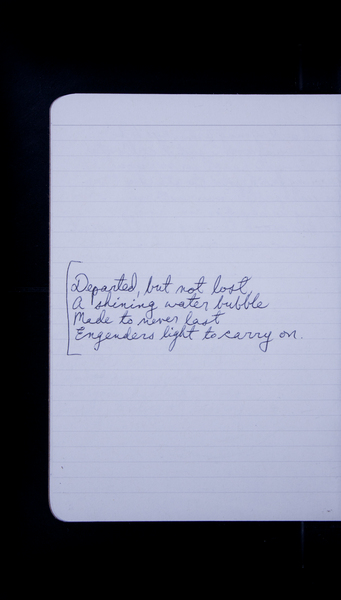 Departed, but not lost,
A shining water bubble
Made to never last
Engenders light to carry on.